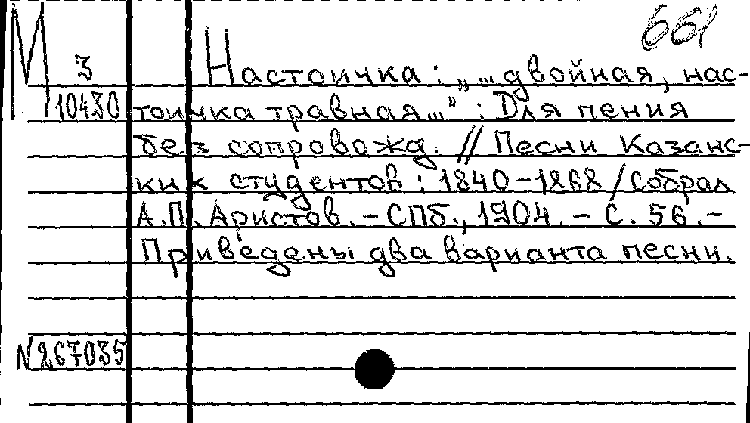 661
М
З
10430
Настоичка: „...двойная, нас-
тоичка травная...": Для пения
без сопровожд. // Песни Казанс-
ких студентов: 1840-1868 / Собрал
А.П. Аристов. - СПб., 1904. - С. 56. -
Приведены два варианта песни.
N267035